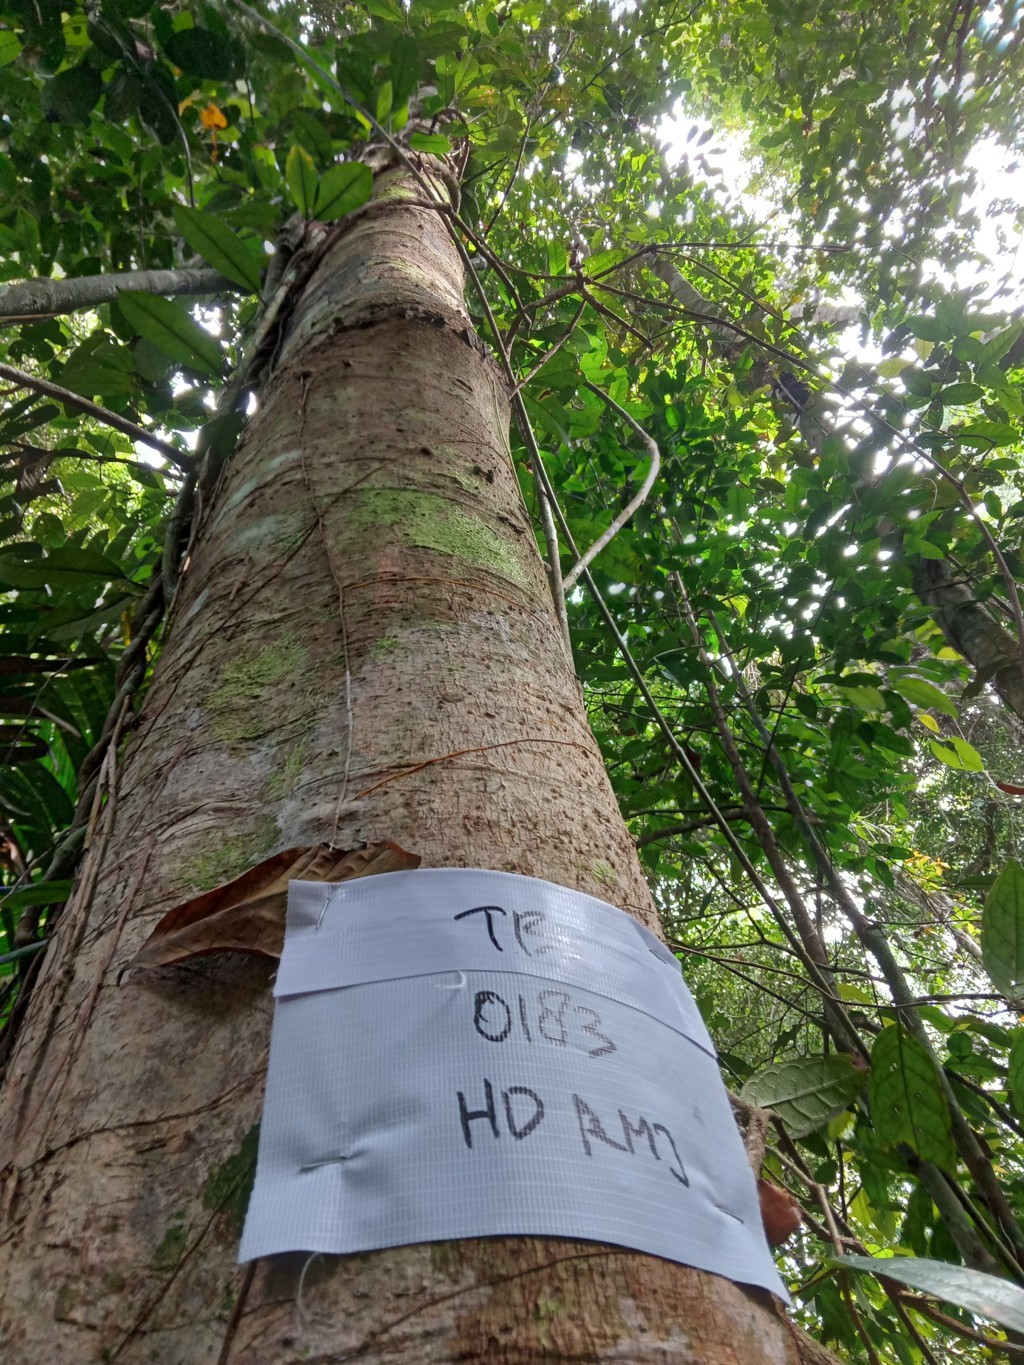 TB
0183
HD AMJ